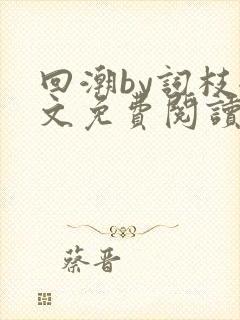 回潮by詞枝
文免費閱讀
蔡晋